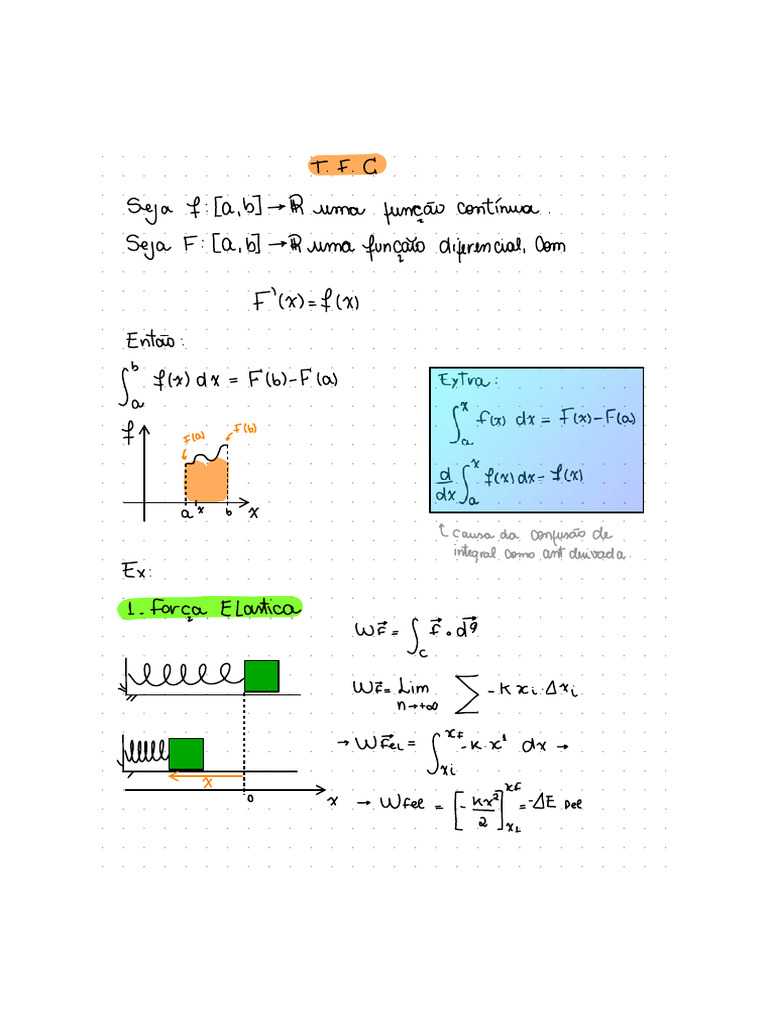 T. F. C
Seja f: [a,b] → ℝ uma função contínua.
Seja F: [a,b] → ℝ uma função diferencial, com
F'(x) = f(x)
Então:
∫_a^b f(x) dx = F(b) - F(a)
f
F(a)
F(b)
a x b x
Extra:
∫_a^x f(x) dx = F(x) - F(a)
d/dx ∫_a^x f(x) dx = f(x)
causa da confusão de
integral como ant derivada.
Ex:
1. Força Elastica
x
0 x
W F⃗ = ∫_C F⃗ · dq⃗
W F⃗ = Lim n→+∞ ∑ -K xi · Δxi
→ W F⃗el = ∫_xi^xf -K · x¹ dx →
→ W fel = [-kx²/2]_x1^xf = -ΔE pel